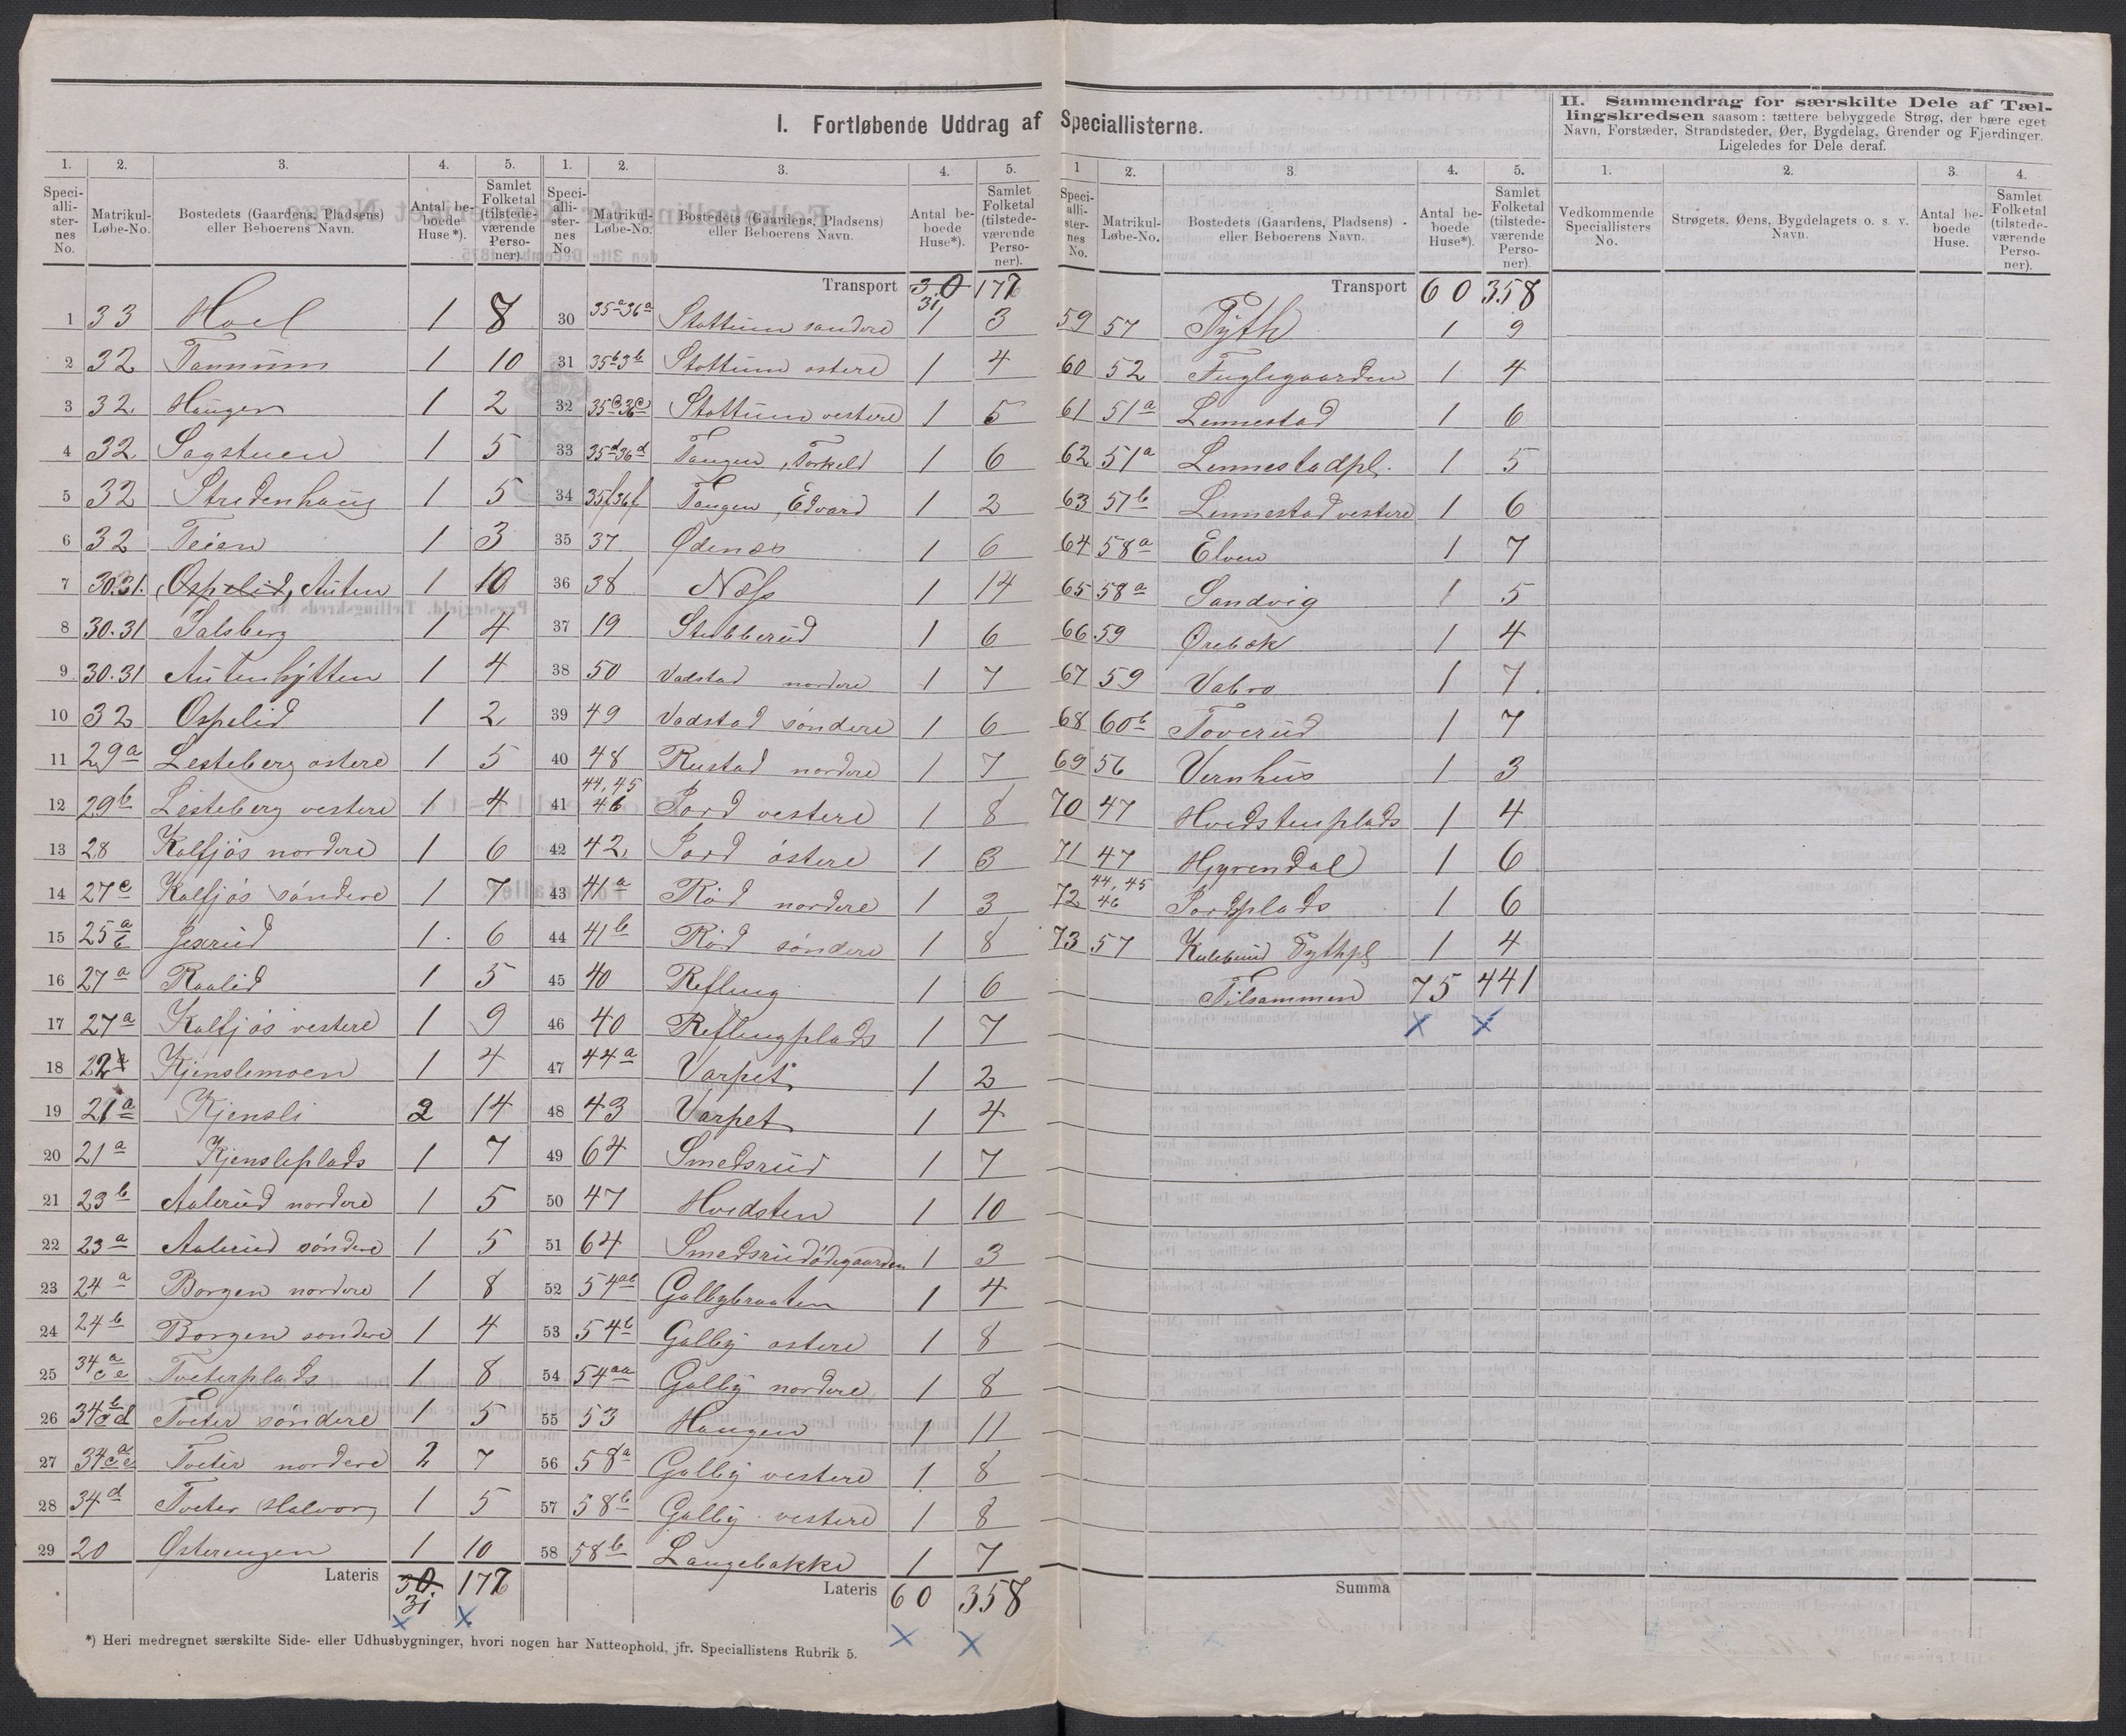 I. Fortløbende Uddrag af Speciallisterne.
II. Sammendrag for særskilte Dele af Tæl-
lingskredsen saasom: tættere bebyggede Strøg, der bære eget
Navn, Forstæder, Strandsteder, Øer, Bygdelag, Grender og Fjerdinger.
Ligeledes for Dele deraf.
1. 2. 3. 4. 5.
Speciallisternes No. Matrikul-Løbe-No. Bostedets (Gaardens, Pladsens) eller Beboerens Navn. Antal beboede Huse*). Samlet Folketal (tilstedeværende Personer).
1 33 Hoel 1 8
2 32 Tannum 1 10
3 32 Haugen 1 2
4 32 Sagstuen 1 5
5 32 Stredenhaug 1 5
6 32 Teien 1 3
7 30.31. Ospelid, Auten 1 10
8 30.31 Salsberg 1 4
9 30.31 Autenhytten 1 4
10 32 Ospelid 1 2
11 29a Lesteberg østere 1 5
12 29b Lesteberg vestere 1 4
13 28 Kalfjøs nordere 1 6
14 27c Kalfjøs søndere 1 7
15 25a b Jexrud 1 6
16 27a Raalid 1 5
17 27a Kalfjøs vestere 1 9
18 22a Kjenslemoen 1 4
19 21a Kjensli 2 14
20 21a Kjensleplads 1 7
21 23b Aalerud nordere 1 5
22 23a Aalerud søndere 1 5
23 24a Borgen nordere 1 8
24 24b Borgen søndere 1 4
25 34a c e Tveterplads 1 8
26 34b d Tveter søndere 1 5
27 34a c e Tveter nordere 2 7
28 34d Tveter Halvor 1 5
29 20 Østerengen 1 10
Lateris 30. 31. 177
1. 2. 3. 4. 5.
Speciallisternes No. Matrikul-Løbe-No. Bostedets (Gaardens, Pladsens) eller Beboerens Navn. Antal beboede Huse*). Samlet Folketal (tilstedeværende Personer).
Transport 30 31 177
30 35a 36a Støttum søndere 1 3
31 35b 3b Støttum østere 1 4
32 35c 36c Støttum vestere 1 5
33 35d 36d Tangen, Torkeld 1 6
34 35f 36f Tangen, Edvard 1 2
35 37 Ødenæs 1 6
36 38 Næss 1 14
37 19 Stubberud 1 6
38 50 Vadstad nordere 1 7
39 49 Vadstad søndere 1 6
40 48 Rustad nordere 1 7
41 44, 45 46 Jord vestere 1 8
42 42 Jord østere 1 3
43 41a Rød nordere 1 3
44 41b Rød søndere 1 8
45 40 Refling 1 6
46 40 Reflingplads 1 7
47 44a Varpet 1 2
48 43 Varpet 1 4
49 64 Smedsrud 1 7
50 47 Hvidsten 1 10
51 64 Smedsrudødegaarden 1 3
52 54ab Galbybraaten 1 4
53 54b Galby østere 1 8
54 54aa Galby nordere 1 8
55 53 Haugen 1 11
56 58a Galby vestere 1 8
57 58b Galby vestere 1 8
58 58b Langebakke 1 7
Lateris 60 358
1 2. 3. 4. 5.
Speciallisternes No. Matrikul-Løbe-No. Bostedets (Gaardens, Pladsens) eller Beboerens Navn. Antal beboede Huse*). Samlet Folketal (tilstedeværende Personer).
Transport 60 358
59 57 Pyth 1 9
60 52 Fuglegaarden 1 4
61 51a Lennestad 1 6
62 51a Lennestadpl. 1 5
63 51b Lennestad vestere 1 6
64 58a Elven 1 7
65 58a Sandvig 1 5
66 59 Ørebæk 1 4
67 59 Vabro 1 7
68 60b Toverud 1 7
69 56 Vernhus 1 3
70 47 Hvidstenplads 1 4
71 47 Hyrendal 1 6
72 44, 45 46 Jordplads 1 6
73 57 Pythpl 1 4
Tilsammen 75 441
Summa
1. 2. 3. 4.
Vedkommende Speciallisters No. Strøgets, Øens, Bygdelagets o. s. v. Navn. Antal beboede Huse. Samlet Folketal (tilstedeværende Personer).
*) Heri medregnet særskilte Side- eller Udhusbygninger, hvori nogen har Natteophold, jfr. Speciallistens Rubrik 5.